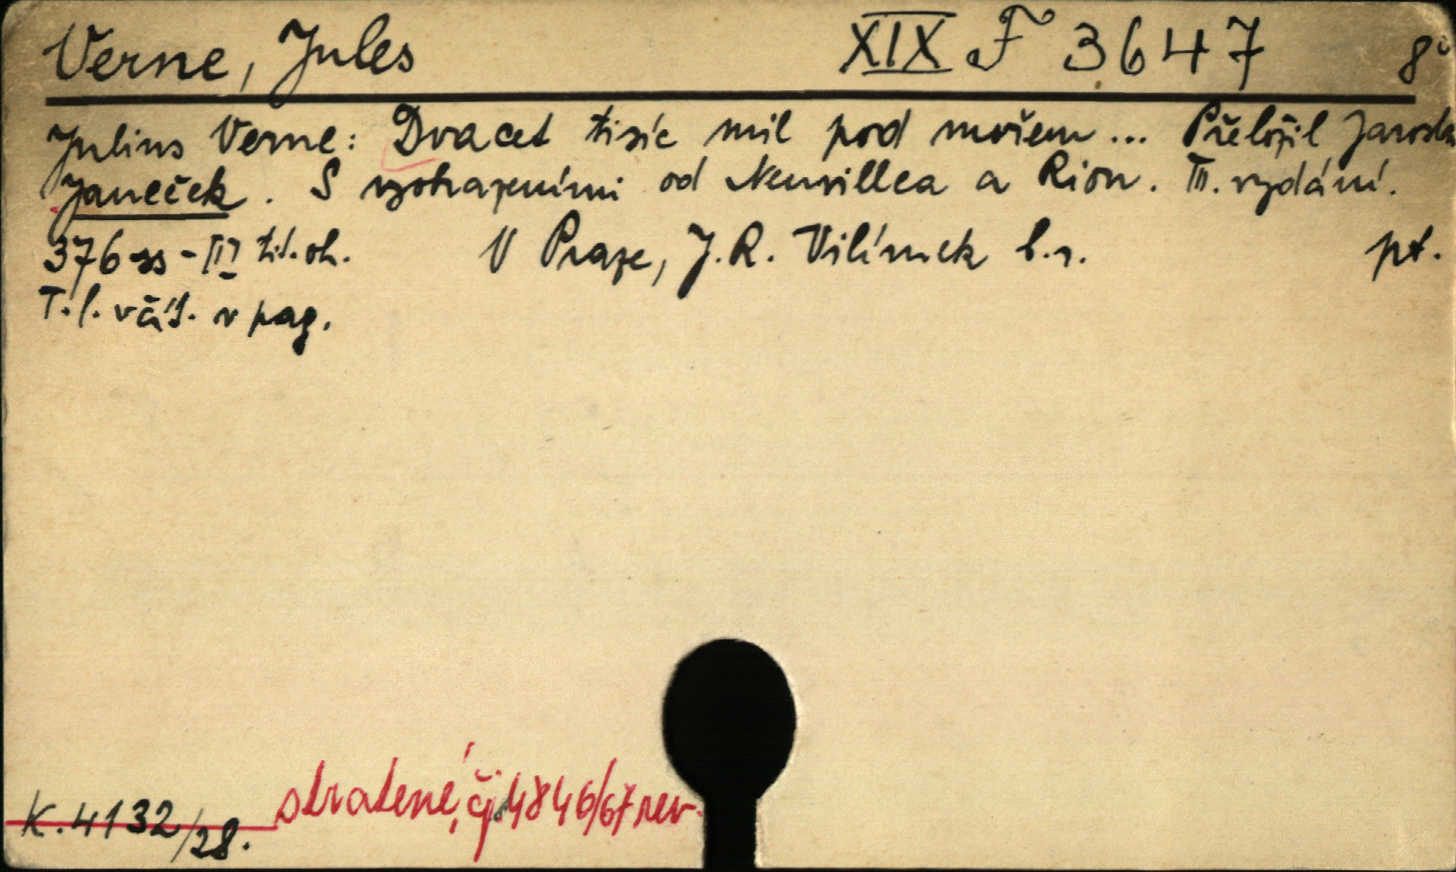 Verne, Jules XIX F 3647 8°
Julius Verne: Dvacet tisíc mil pod mořem... Přeložil Jarosl.
Janeček. S vyobrazeními od Neuvillea a Riou. III. vydání.
376 ss - III tit. ob. V Praze, J. R. Vilímek b. r. pt.
T. l. včít. v pag.
K. 4132/28. stratené, čj 4846/67 rev.